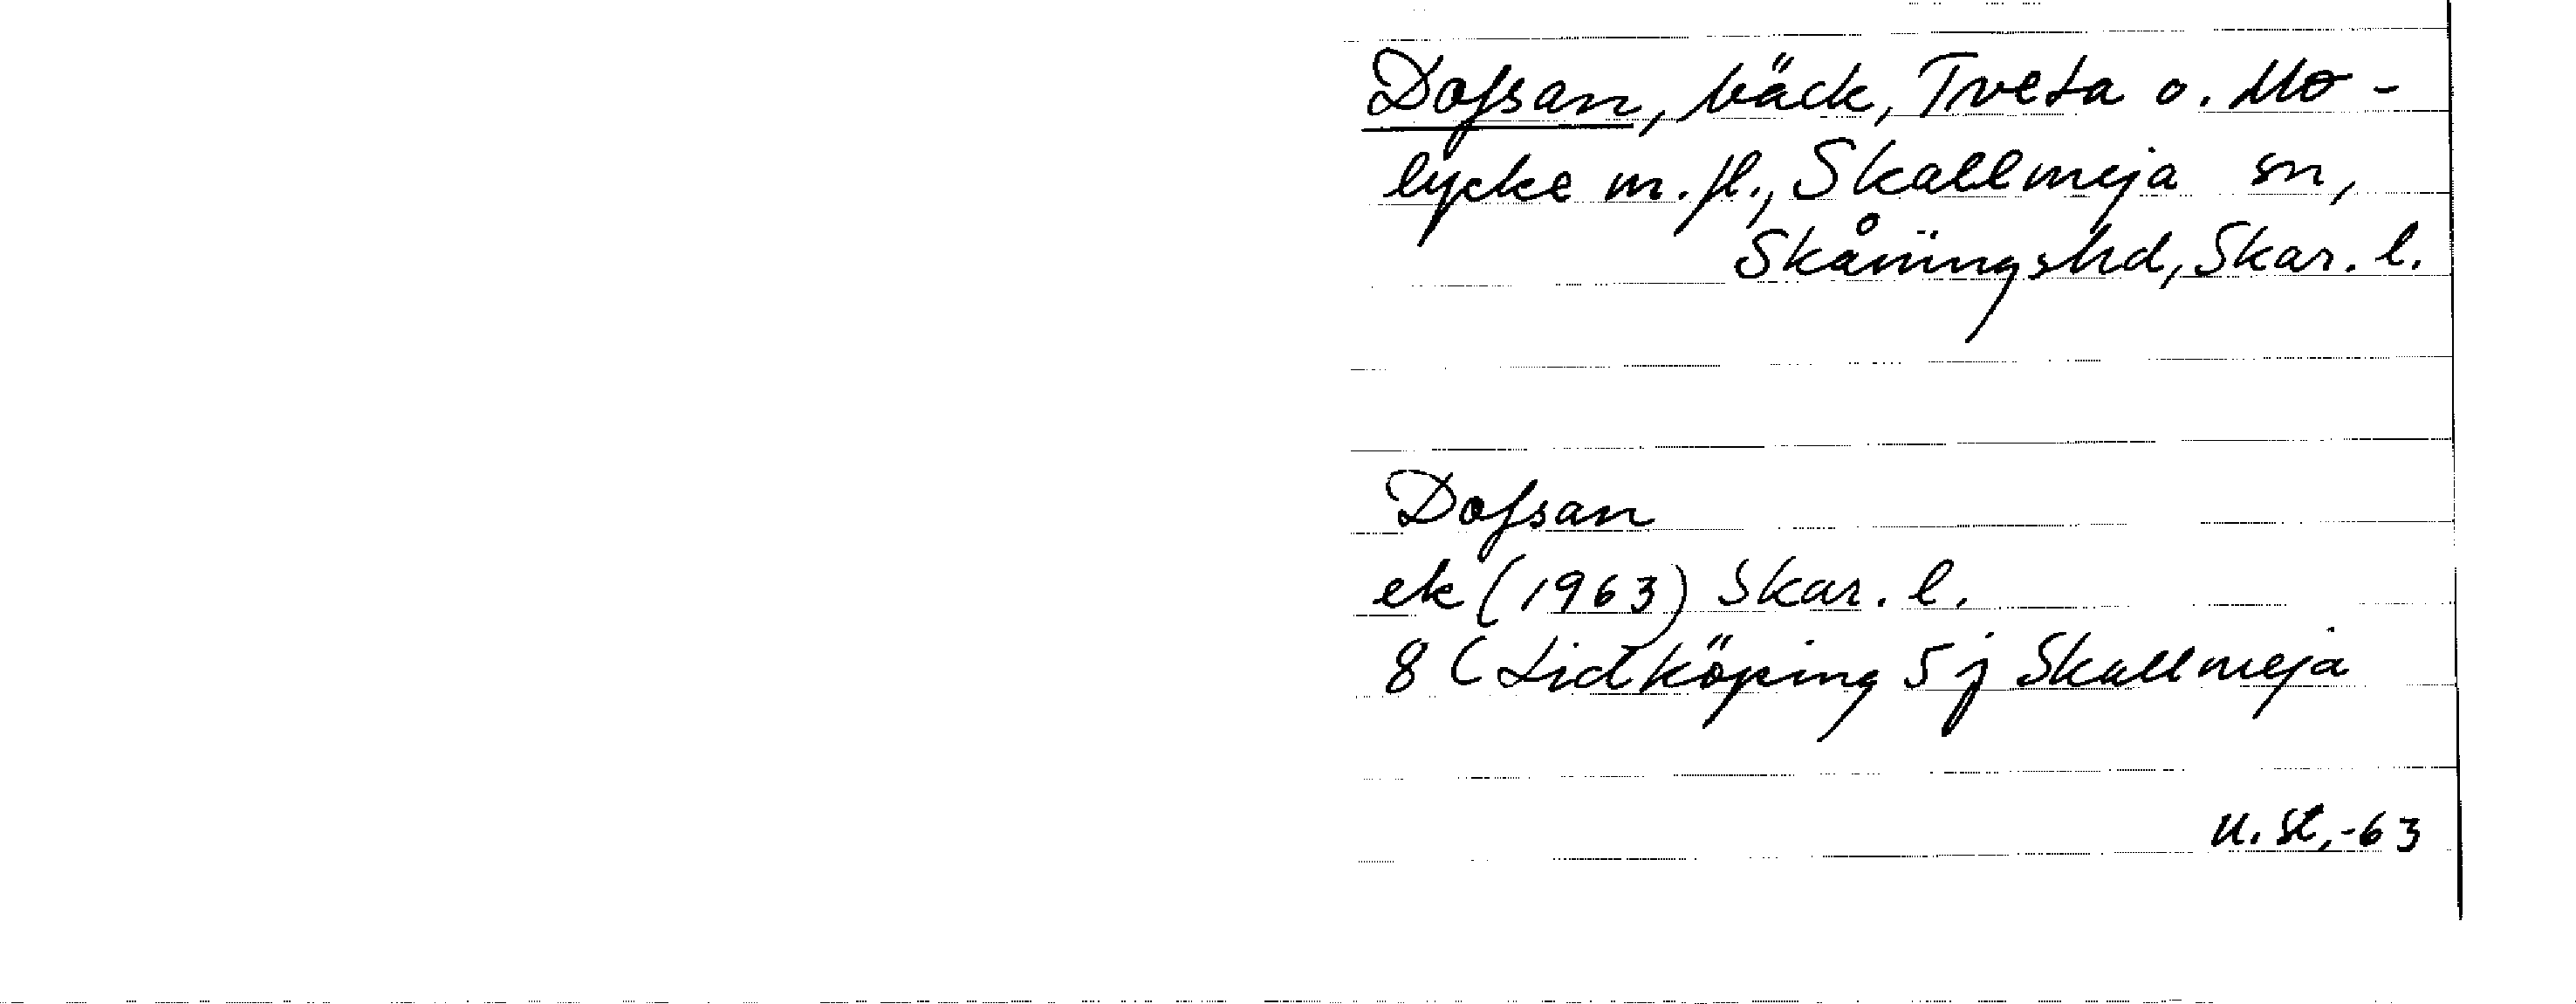 Dofsan, bäck, Tveta o. Mo-
lycke m.fl., Skallmeja sn,
Skåningshd, Skar. l.
Dofsan
ek (1963) Skar. l.
8 C Lidköping 5 j Skallmeja
U. St, -63